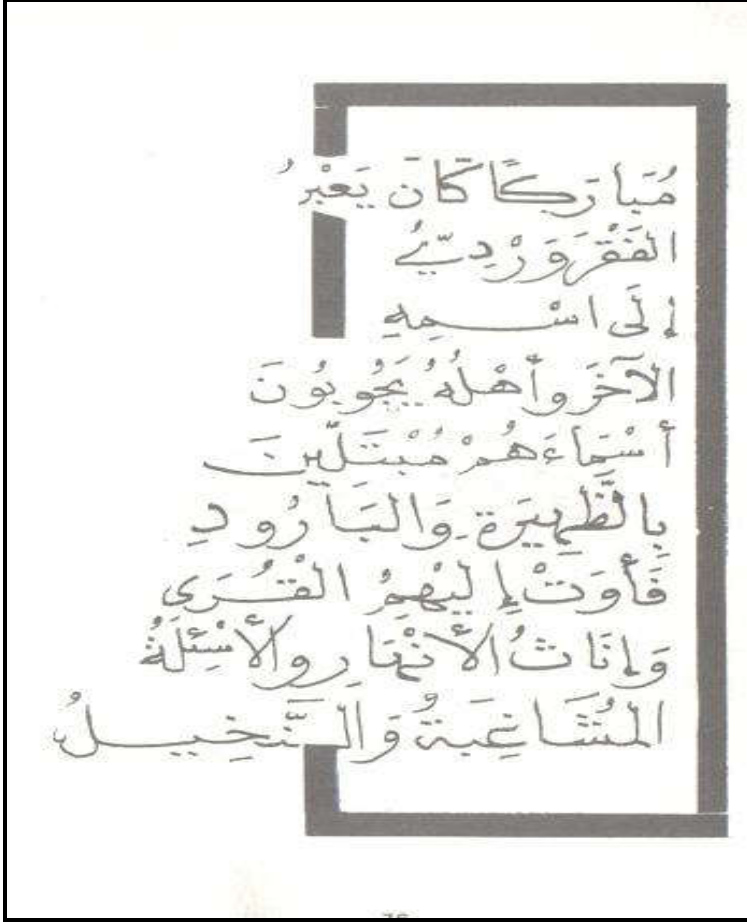 مُبَارَكًا كَانَ يَعْبُرُ
الفَقْرَ وَرْدِيّ
إِلَى اسْمِهِ
الآخَرَ وأَهْلُهُ يَجُوبُونَ
أَسْمَاءَهُمْ مُبْتَلِّينَ
بِالظَّهِيرَةِ وَالبَارُودِ
فَأَوَتْ إِلَيْهِمْ الْقُرَى
وَإِنَاثُ الأَنْهَارِ والأَسْئِلَةُ
المُشَاغِبَةُ وَالنَّخِيلُ